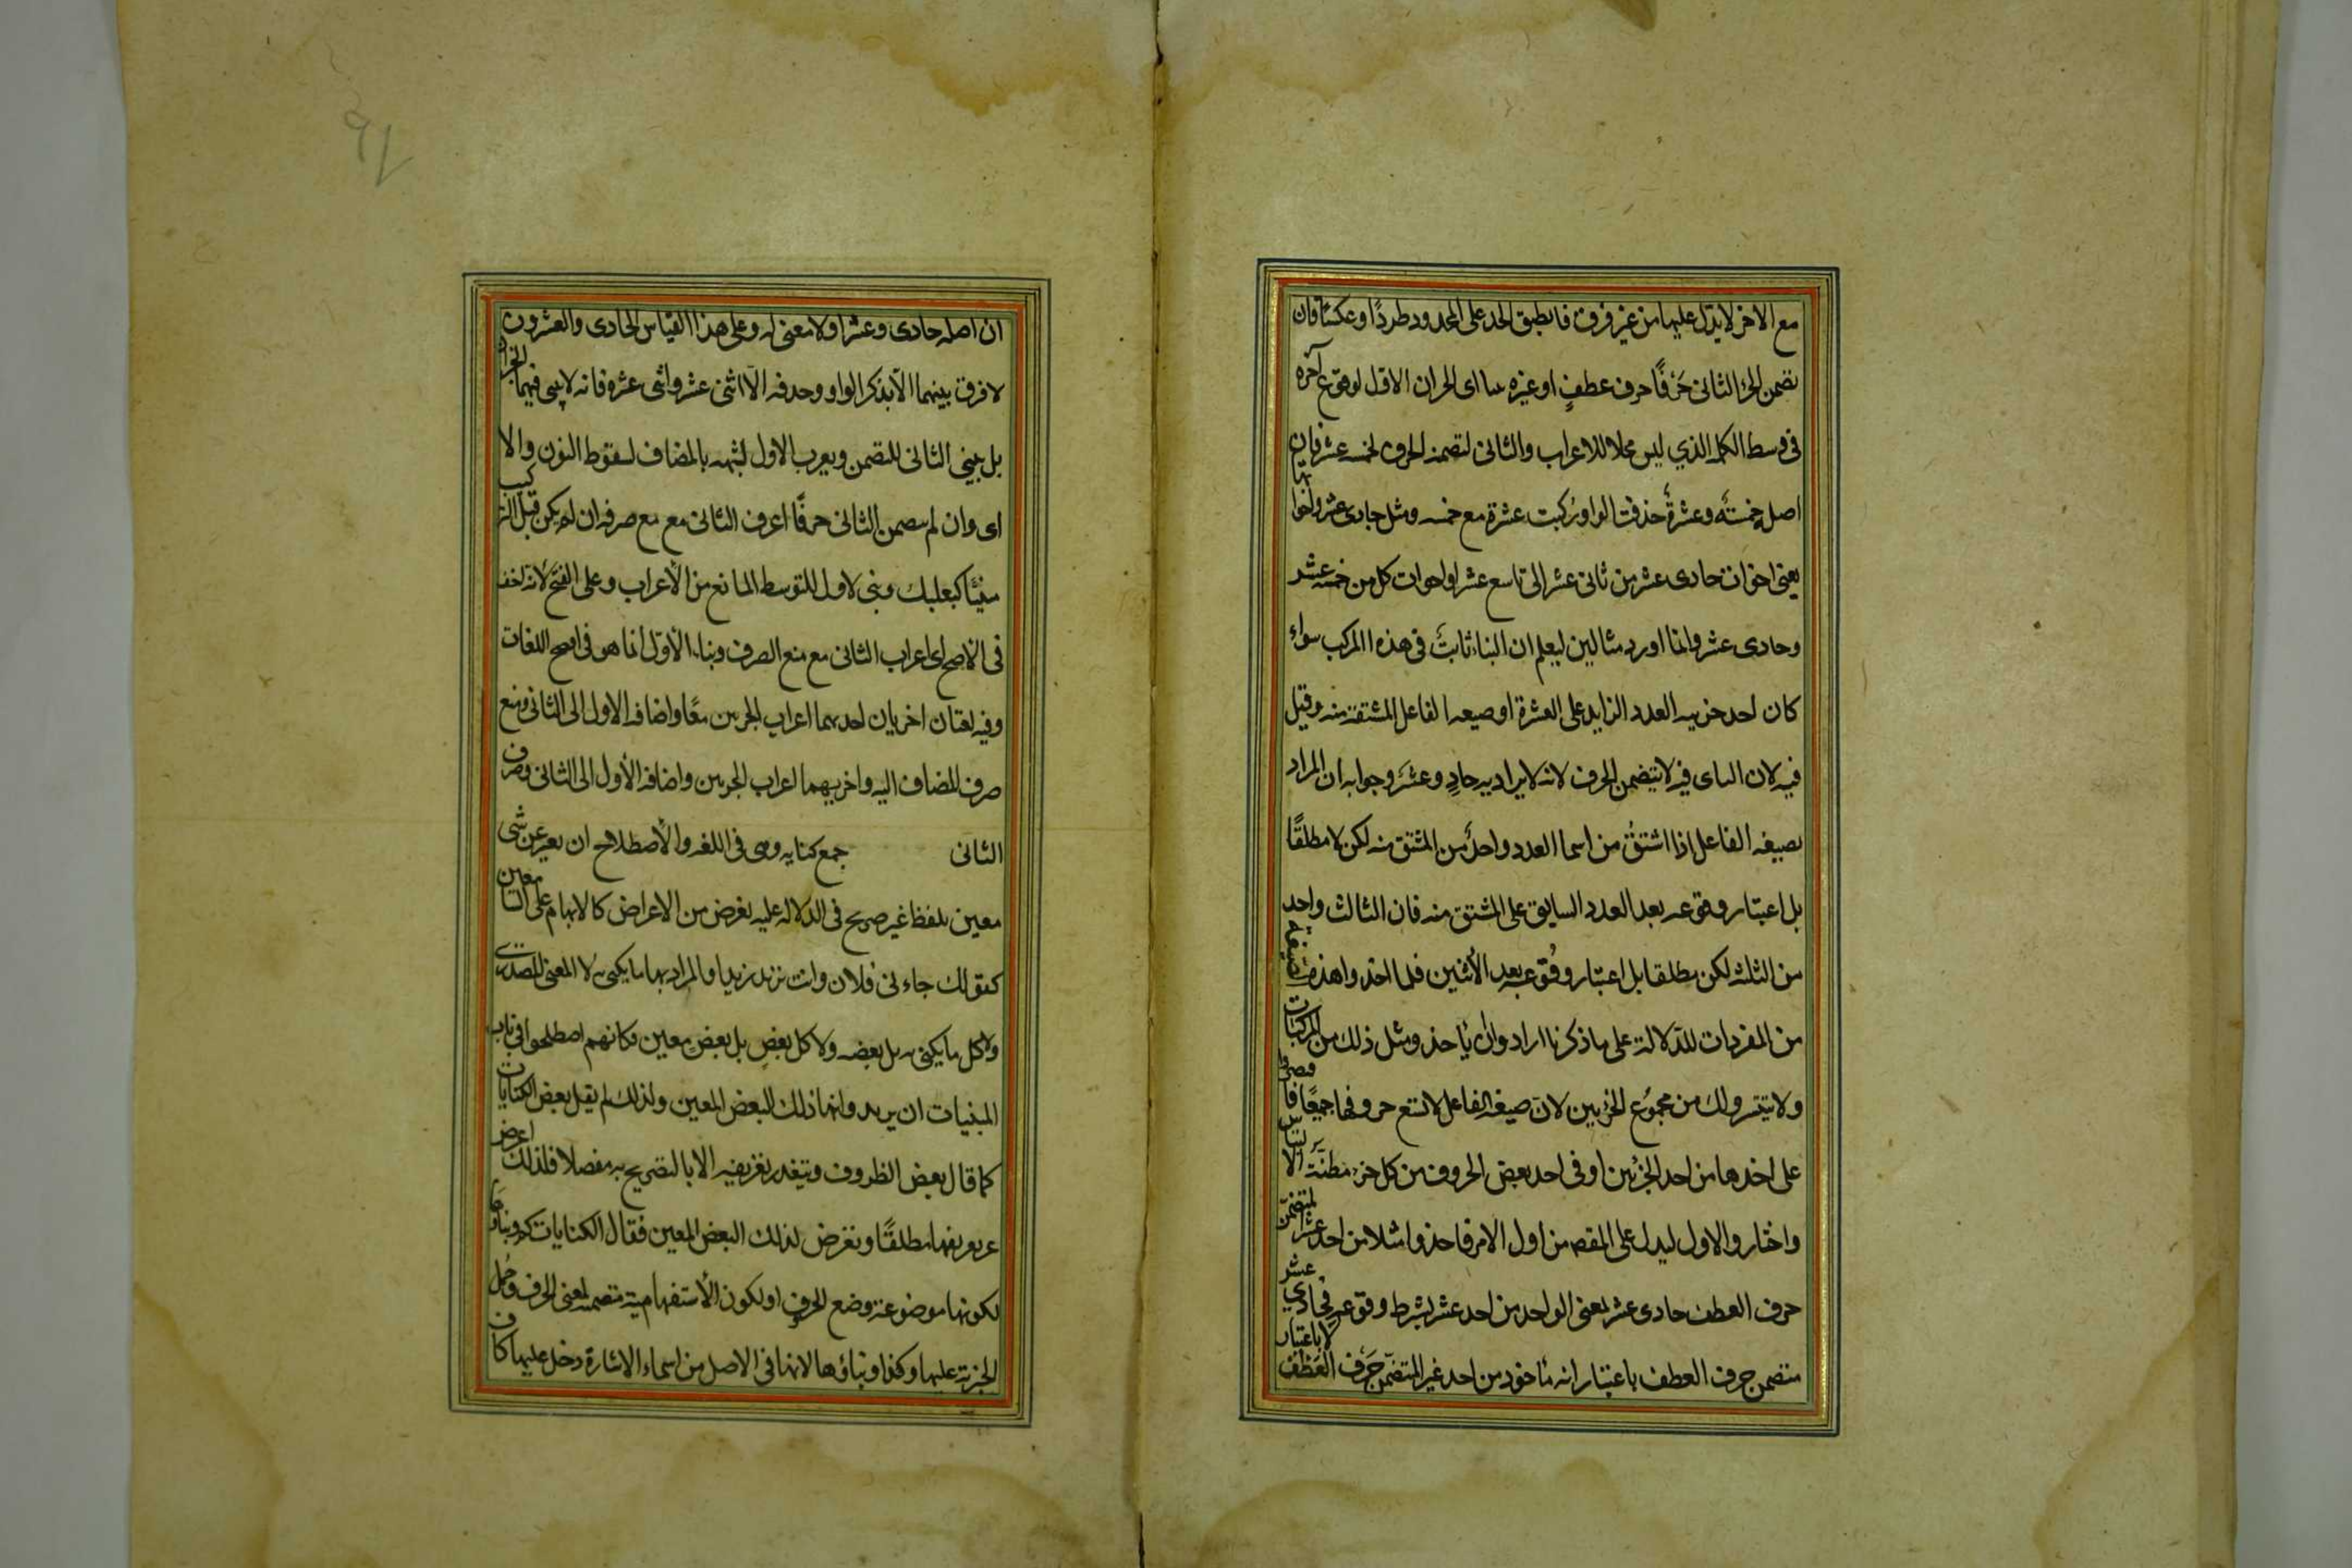 مع الاخر لا يدل عليهما من غير فرق فانطبق الحد على المحدود طردًا وعكسًا فان
تضمن الجزء الثانى حَرْفًا حرف عطفٍ او غيره بنيا اى الجزان الاول لوقوع آخره
فى وسط الكلمة الذي ليس محلا للاعراب والثانى لتضمنه الحرف كخمسة عشر فان
اصله خمسةٌ وعشرةٌ حذفت الواو وركبت عشرة مع خمسه ومثل حادى عشر واخواتها
يعنى اخوات حادى عشر من ثانى عشر الى تاسع عشر او اخوات كل من خمسه عشر
وحادى عشر وانما اورد مثالين ليعلم ان البناء ثابتٌ فى هذه المركب سواء
كان احد جزئيه العدد الزايد على العشرة او صيغه الفاعل المشتقة منه وقيل
فيه لان الثانى فيه لا يتضمن الحرف لانه لا يراد به حادٍ وعشَرَ وجوابه ان المراد
بصيغه الفاعل اذا اشتقَّ من اسما العدد واحدٌ من المشتق منه لكن لا مطلقًا
بل اعتبار وقوعه بعد العدد السابق على المشتق منه فان الثالث واحد
من الثلثه لكن مطلقا بل اعتبار وقوعه بعد الاثنين فلما اخذوا هذه الصيغة
من المفردات للدّلالة على ما ذكرنا ارادوا ان يأخذو مثل ذلك من المركبات
ولا يتيسر ذلك من مجموع الجزءين لانّ صيغه الفاعل لا تسع حروفها جميعًا فاقتصروا
على اخذها من احد الجزئين او فى احد بعض الحروف من كل جزء مظنّة الالتباس
واختاروا الاول ليدل على المقصد من اول الامر فاخذوا مثلا من احد عشر المتضمن
حرف العطف حادى عشر بمعنى الواحد من احد عشر بشرط وقوعه فحادي عشر
متضمن حرف العطف باعتبار انه مأخوذ من احد غير المتضمّن حَرف العَطف لا باعتبار
ان اصله حادى وعشر اولا معنى له وعلى هذا القياس الحادى والعشرون
لا فرق بينهما الّا بذكر الواو وحذفه الّا اثنى عشر واثنى عشره فانه لا يبنى فيهما الجزان
بل يبنى الثانى للتضمن ويعرب الاول لشبهه بالمضاف لسقوط النون والا
اى وان لم يتضمن الثانى حرفًا اعرف الثانى مع مع صرفه ان لم يكن قبل التركيب
مبنيًّا كبعلبك وبنى لاول للتوسط المانع من الأعراب وعلى الفتح لانّه اخف
فى الأصح اى اعراب الثانى مع منع الصرف وبناء الأول انما هو فى افصح اللغات
وفيه لغتان اخريان احديهما اعراب الجزءين معًا واضافه الاول الى الثانى ومنع
صرف المضاف اليه واخريهما اعراب الجزءين واضافه الأول الى الثانى وصرف
الثانى جمع كنايه وهى فى اللغه والأصطلاح ان يعبر عن شى
معين بلفظ غير صريح فى الدلاله عليه لغرض من الاعراض كالابهام على السامعين
كقولك جاءنى فلان وانت تريد زيدا والمراد بها ما يكنى به لا المعنى المصدرى
ولا كل ما يكنى به بل بعضه ولا كل بعضٍ بل بعضٍ معين وكانهم اصطلحوا فى باب
المبنيات ان يريدوا بها ذلك البعض المعين ولذلك لم يقل بعض الكنايات
كما قال بعض الظروف ويتعذر تعريفه الا بالتصريح به مفصلا فلذلك اعرض
عن تعريفها مطلقًا وتعرض لذلك البعض المعين فقال الكنايات كم وبناوها
لكونها موضوعة وضع الحرف او لكون الأستفهامية متضمنه لمعنى الحرف وحمل
الخبرية عليها وكذا وبناؤها لانها فى الاصل من اسماء الاشارة دخل عليها كاف